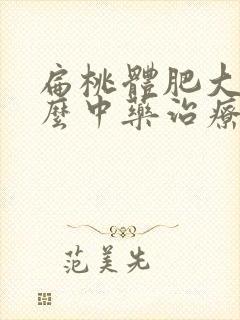 扁桃體肥大
麼中藥治療
范美先